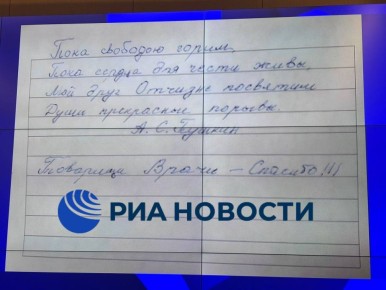 Пока свободою горим,
Пока сердца для чести живы,
Мой друг Отчизне посвятим
Души прекрасные порывы.
А. С. Пушкин
Товарищи Врачи – Спасибо!!!
РИА НОВОСТИ